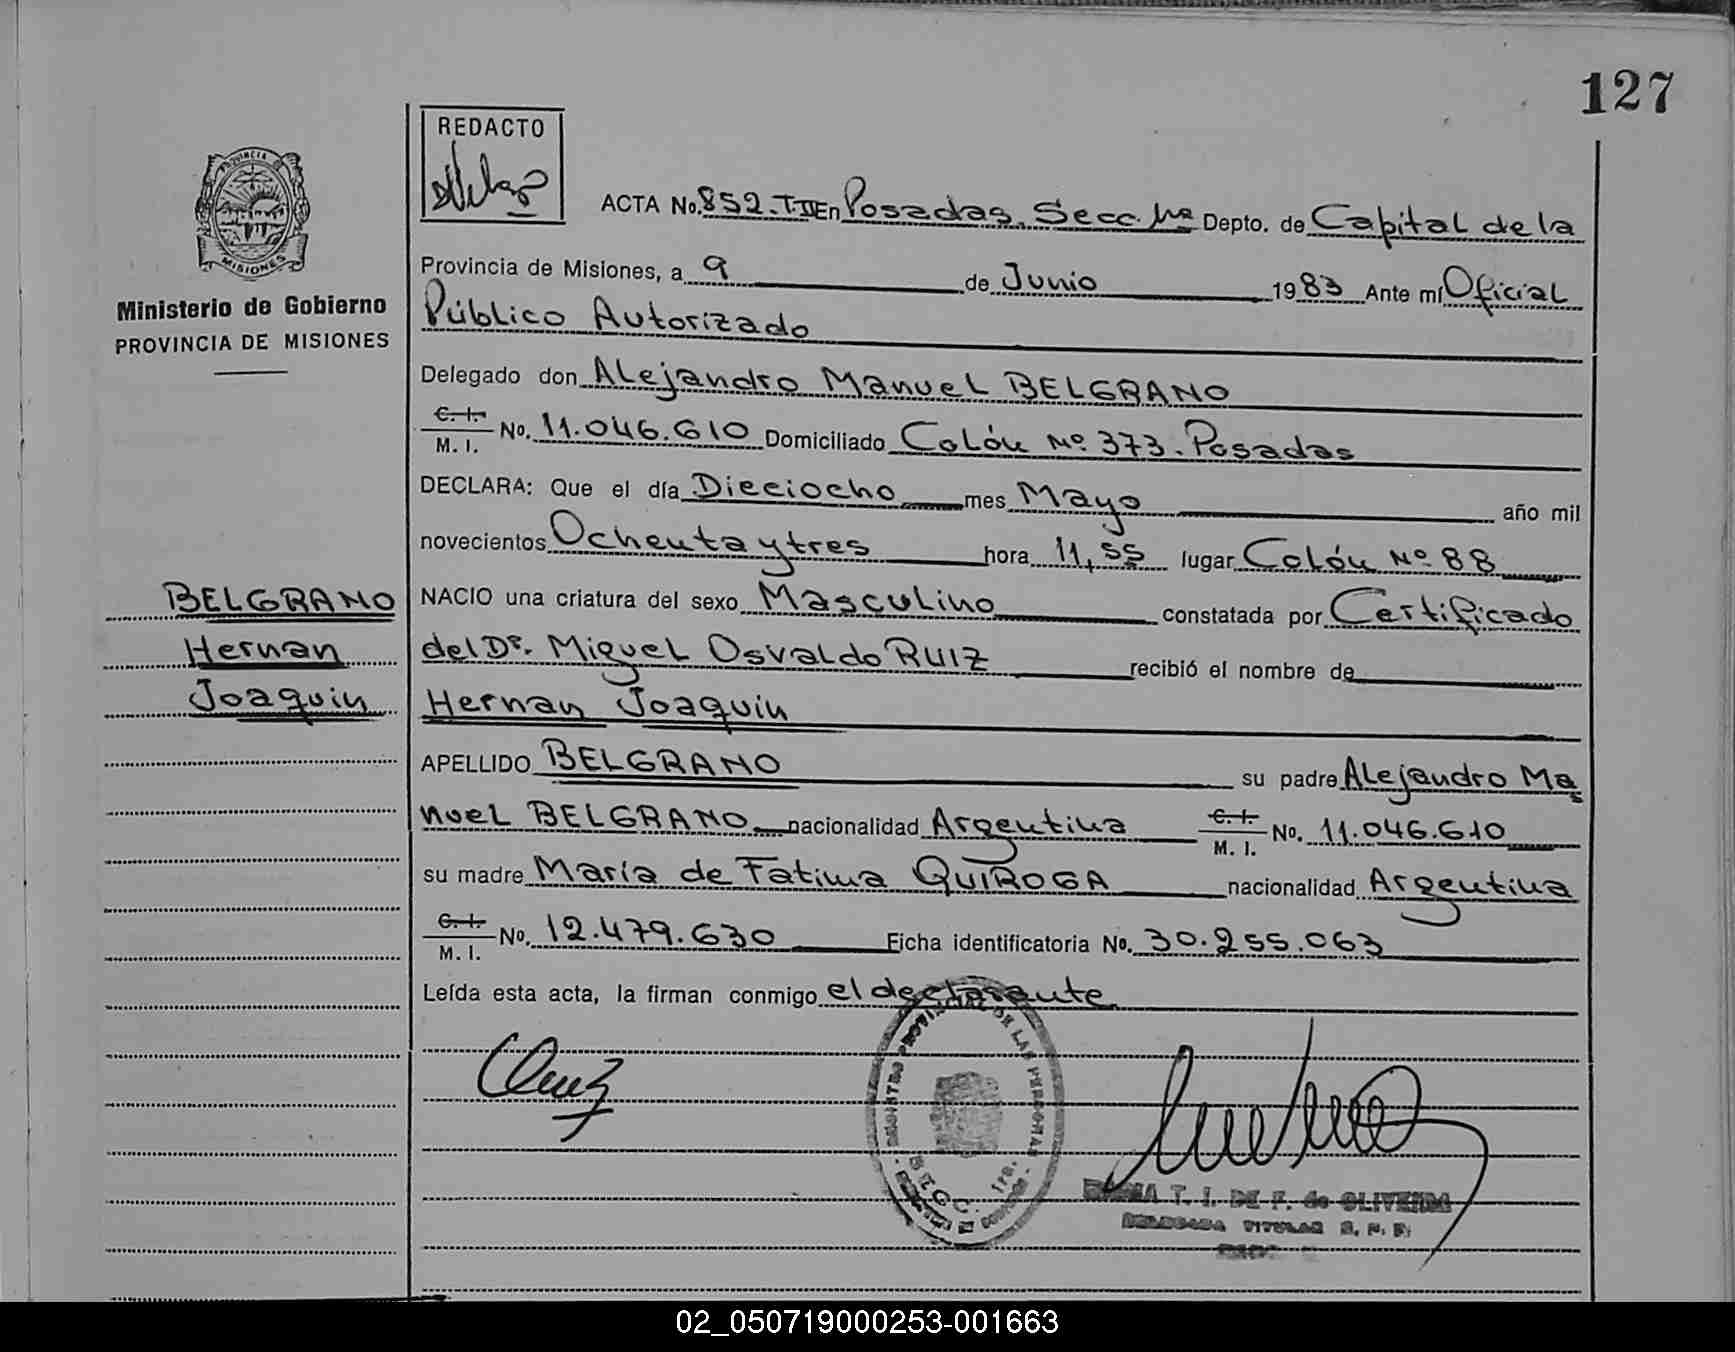 127
REDACTO
ACTA No. 852.T.II En Posadas, Secc. 1ra Depto. de Capital de la
PROVINCIA
MISIONES
Provincia de Misiones, a 9 de Junio 1983 Ante mí Oficial
Ministerio de Gobierno
PROVINCIA DE MISIONES
Público Autorizado
Delegado don Alejandro Manuel BELGRANO
C. I.
M. I. No. 11.046.610 Domiciliado Colón Nº 373. Posadas
DECLARA: Que el día Dieciocho mes Mayo año mil
novecientos Ochenta y tres hora 11,55 lugar Colón Nº 88
BELGRANO
Hernan
Joaquin
NACIO una criatura del sexo Masculino constatada por Certificado
del Dr. Miguel Osvaldo RUIZ recibió el nombre de
Hernan Joaquin
APELLIDO BELGRANO su padre Alejandro Ma
nuel BELGRANO nacionalidad Argentina C. I. M. I. No. 11.046.610
su madre María de Fatima QUIROGA nacionalidad Argentina
C. I.
M. I. No. 12.479.630 Ficha identificatoria No. 30.255.063
Leída esta acta, la firman conmigo el declarante
REGISTRO PROVINCIAL DE LAS PERSONAS
SECC. 1ra.
T. I. DE F. de OLIVEIRA
DELEGADA TITULAR R. P. P.
02_050719000253-001663